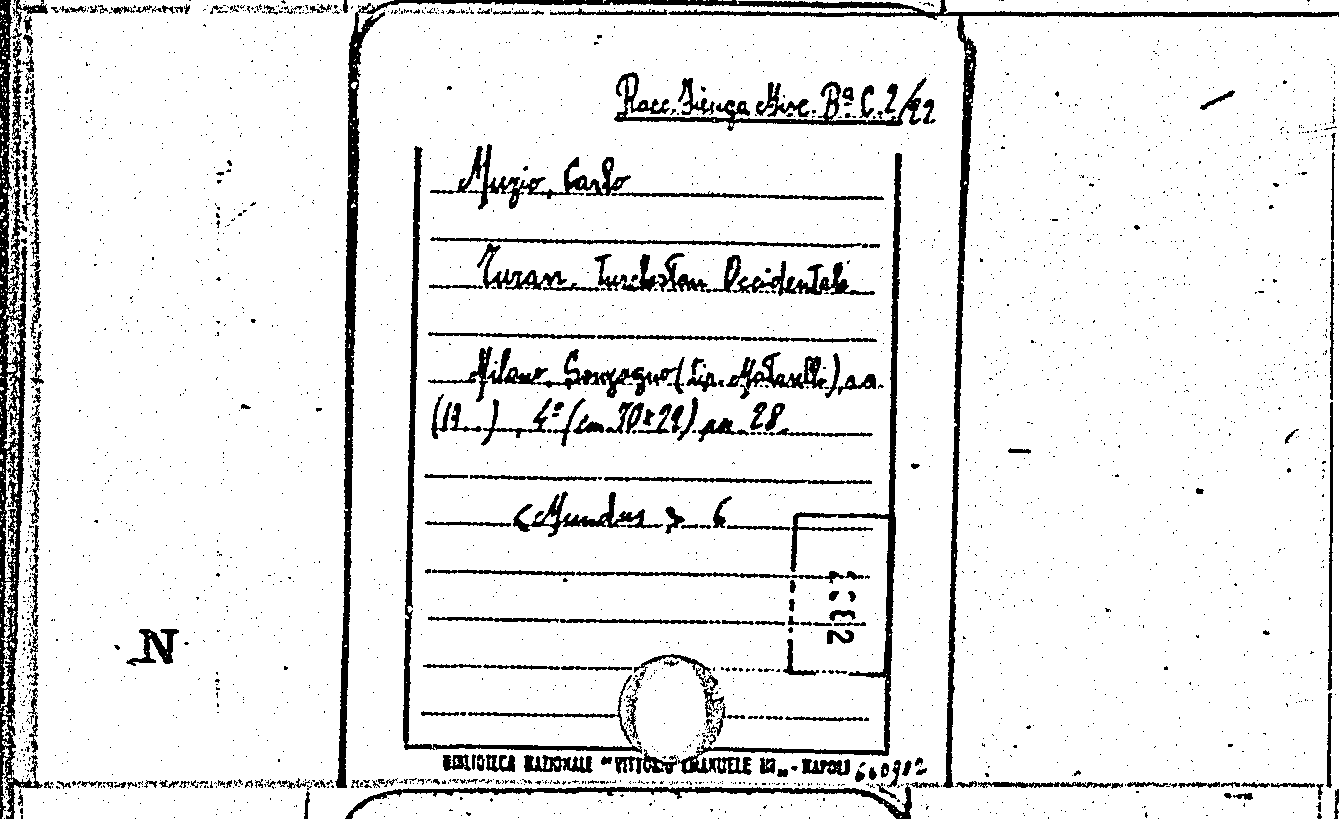 Racc. Fienga Misc. Bª C. 2/22
Muzio, Carlo
Turan. Turchestan Occidentale
Milano, Sonzogno (tip. Matarelli), s.a.
(19..), 4° (cm 30x22) pp. 28.
<Mundus> 6
N
BIBLIOTECA NAZIONALE "VITTORIO EMANUELE III" - NAPOLI